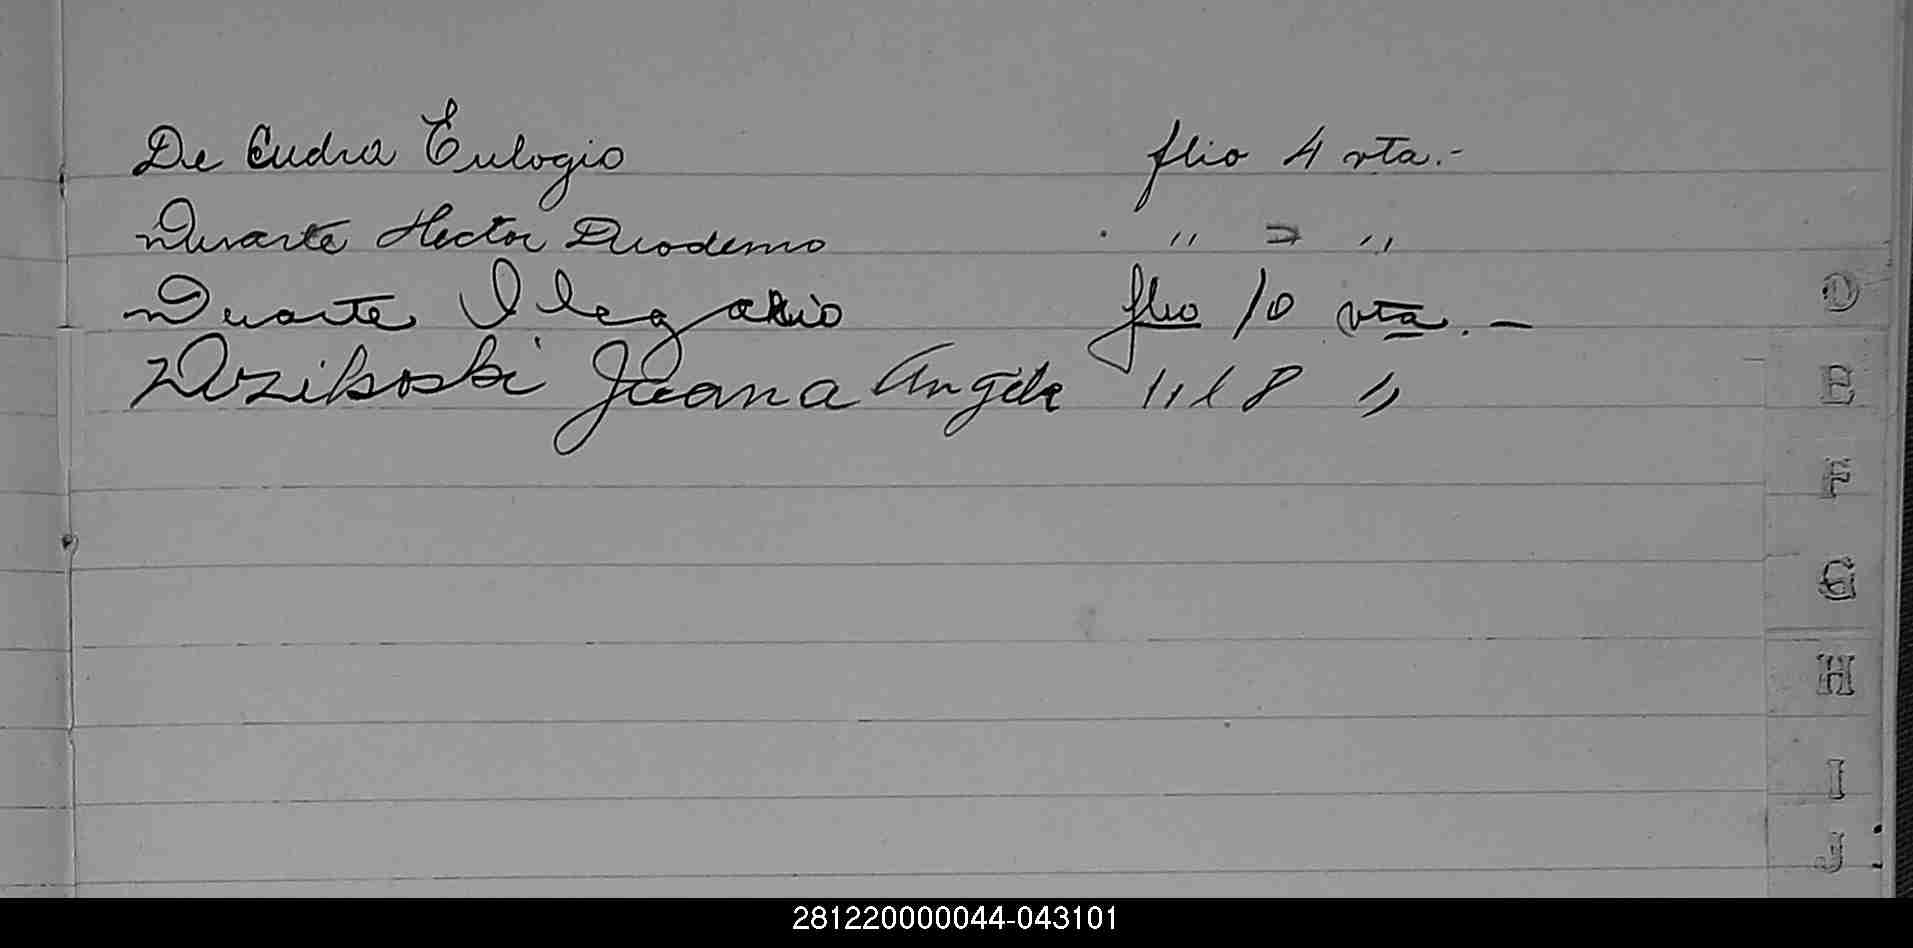 De Cudra Eulogio flio 4 vta.-
Duarte Hector Diodemo " " "
Duarte Olegario flio 10 vta. -
Dzikoski Juana Angela " 18 "
D
E
F
G
H
I
J
281220000044-043101